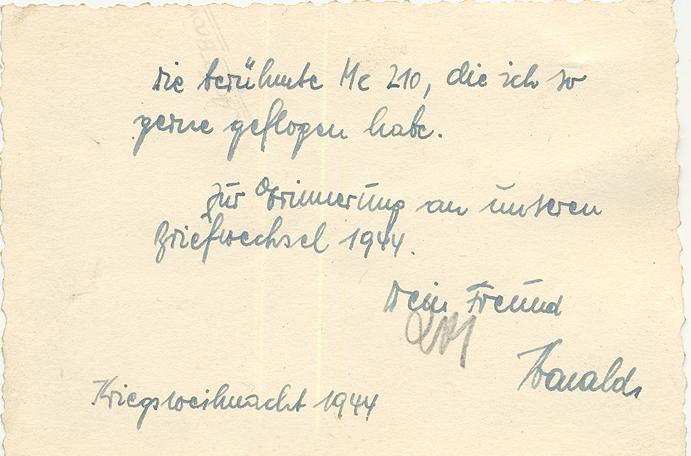 die berühmte Me 210, die ich so
gerne geflogen habe.
Zur Erinnerung an unseren
Briefwechsel 1944.
Dein Freund
Harald
Kriegsweihnacht 1944